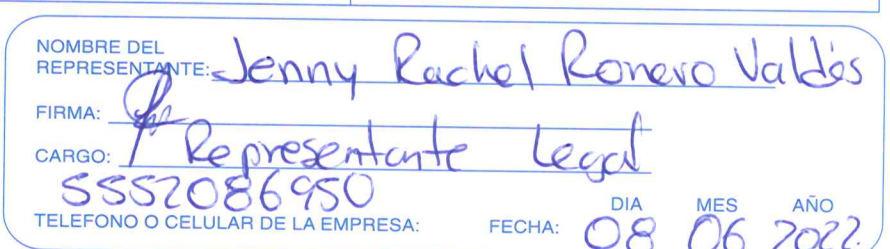 NOMBRE DEL
REPRESENTANTE: Jenny Rachel Romero Valdés
FIRMA:
CARGO: Representante Legal
5552086950
TELEFONO O CELULAR DE LA EMPRESA:
FECHA: DIA MES AÑO
08 06 2022